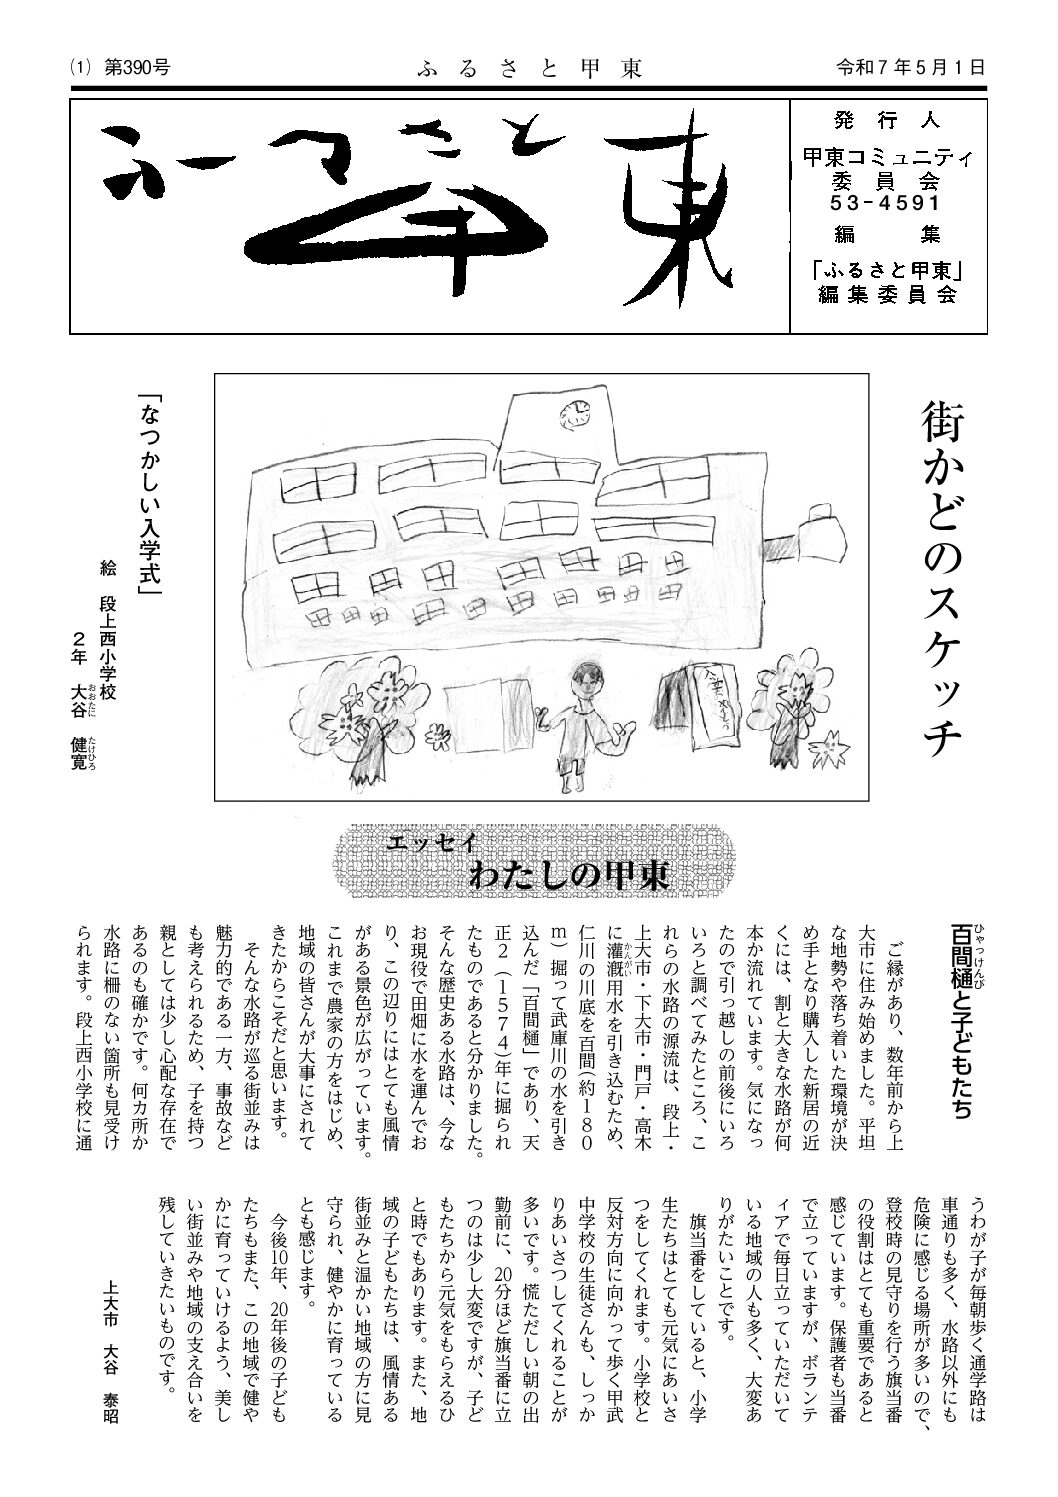 (1) 第390号
ふるさと甲東
令和7年5月1日
ふるさと
甲東
発行人
甲東コミュニティ
委員会
53-4591
編集
「ふるさと甲東」
編集委員会
街かどのスケッチ
入学式
「なつかしい入学式」
絵 段上西小学校
2年 大谷 健寛
おおたに たけひろ
エッセイ
わたしの甲東
ひゃっけんび
百間樋と子どもたち
ご縁があり、数年前から上
大市に住み始めました。平坦
な地勢や落ち着いた環境が決
め手となり購入した新居の近
くには、割と大きな水路が何
本か流れています。気になっ
たので引っ越しの前後にいろ
いろと調べてみたところ、こ
れらの水路の源流は、段上・
上大市・下大市・門戸・高木
かんがい
に灌漑用水を引き込むため、
仁川の川底を百間(約180
m)掘って武庫川の水を引き
込んだ「百間樋」であり、天
正2(1574)年に掘られ
たものであると分かりました。
そんな歴史ある水路は、今な
お現役で田畑に水を運んでお
り、この辺りにはとても風情
がある景色が広がっています。
これまで農家の方をはじめ、
地域の皆さんが大事にされて
きたからこそだと思います。
そんな水路が巡る街並みは
魅力的である一方、事故など
も考えられるため、子を持つ
親としては少し心配な存在で
あるのも確かです。何カ所か
水路に柵のない箇所も見受け
られます。段上西小学校に通
うわが子が毎朝歩く通学路は
車通りも多く、水路以外にも
危険に感じる場所が多いので、
登校時の見守りを行う旗当番
の役割はとても重要であると
感じています。保護者も当番
で立っていますが、ボランテ
ィアで毎日立っていただいて
いる地域の人も多く、大変あ
りがたいことです。
旗当番をしていると、小学
生たちはとても元気にあいさ
つをしてくれます。小学校と
反対方向に向かって歩く甲武
中学校の生徒さんも、しっか
りあいさつしてくれることが
多いです。慌ただしい朝の出
勤前に、20分ほど旗当番に立
つのは少し大変ですが、子ど
もたちから元気をもらえるひ
と時でもあります。また、地
域の子どもたちは、風情ある
街並みと温かい地域の方に見
守られ、健やかに育っている
とも感じます。
今後10年、20年後の子ども
たちもまた、この地域で健や
かに育っていけるよう、美し
い街並みや地域の支え合いを
残していきたいものです。
上大市 大谷 泰昭